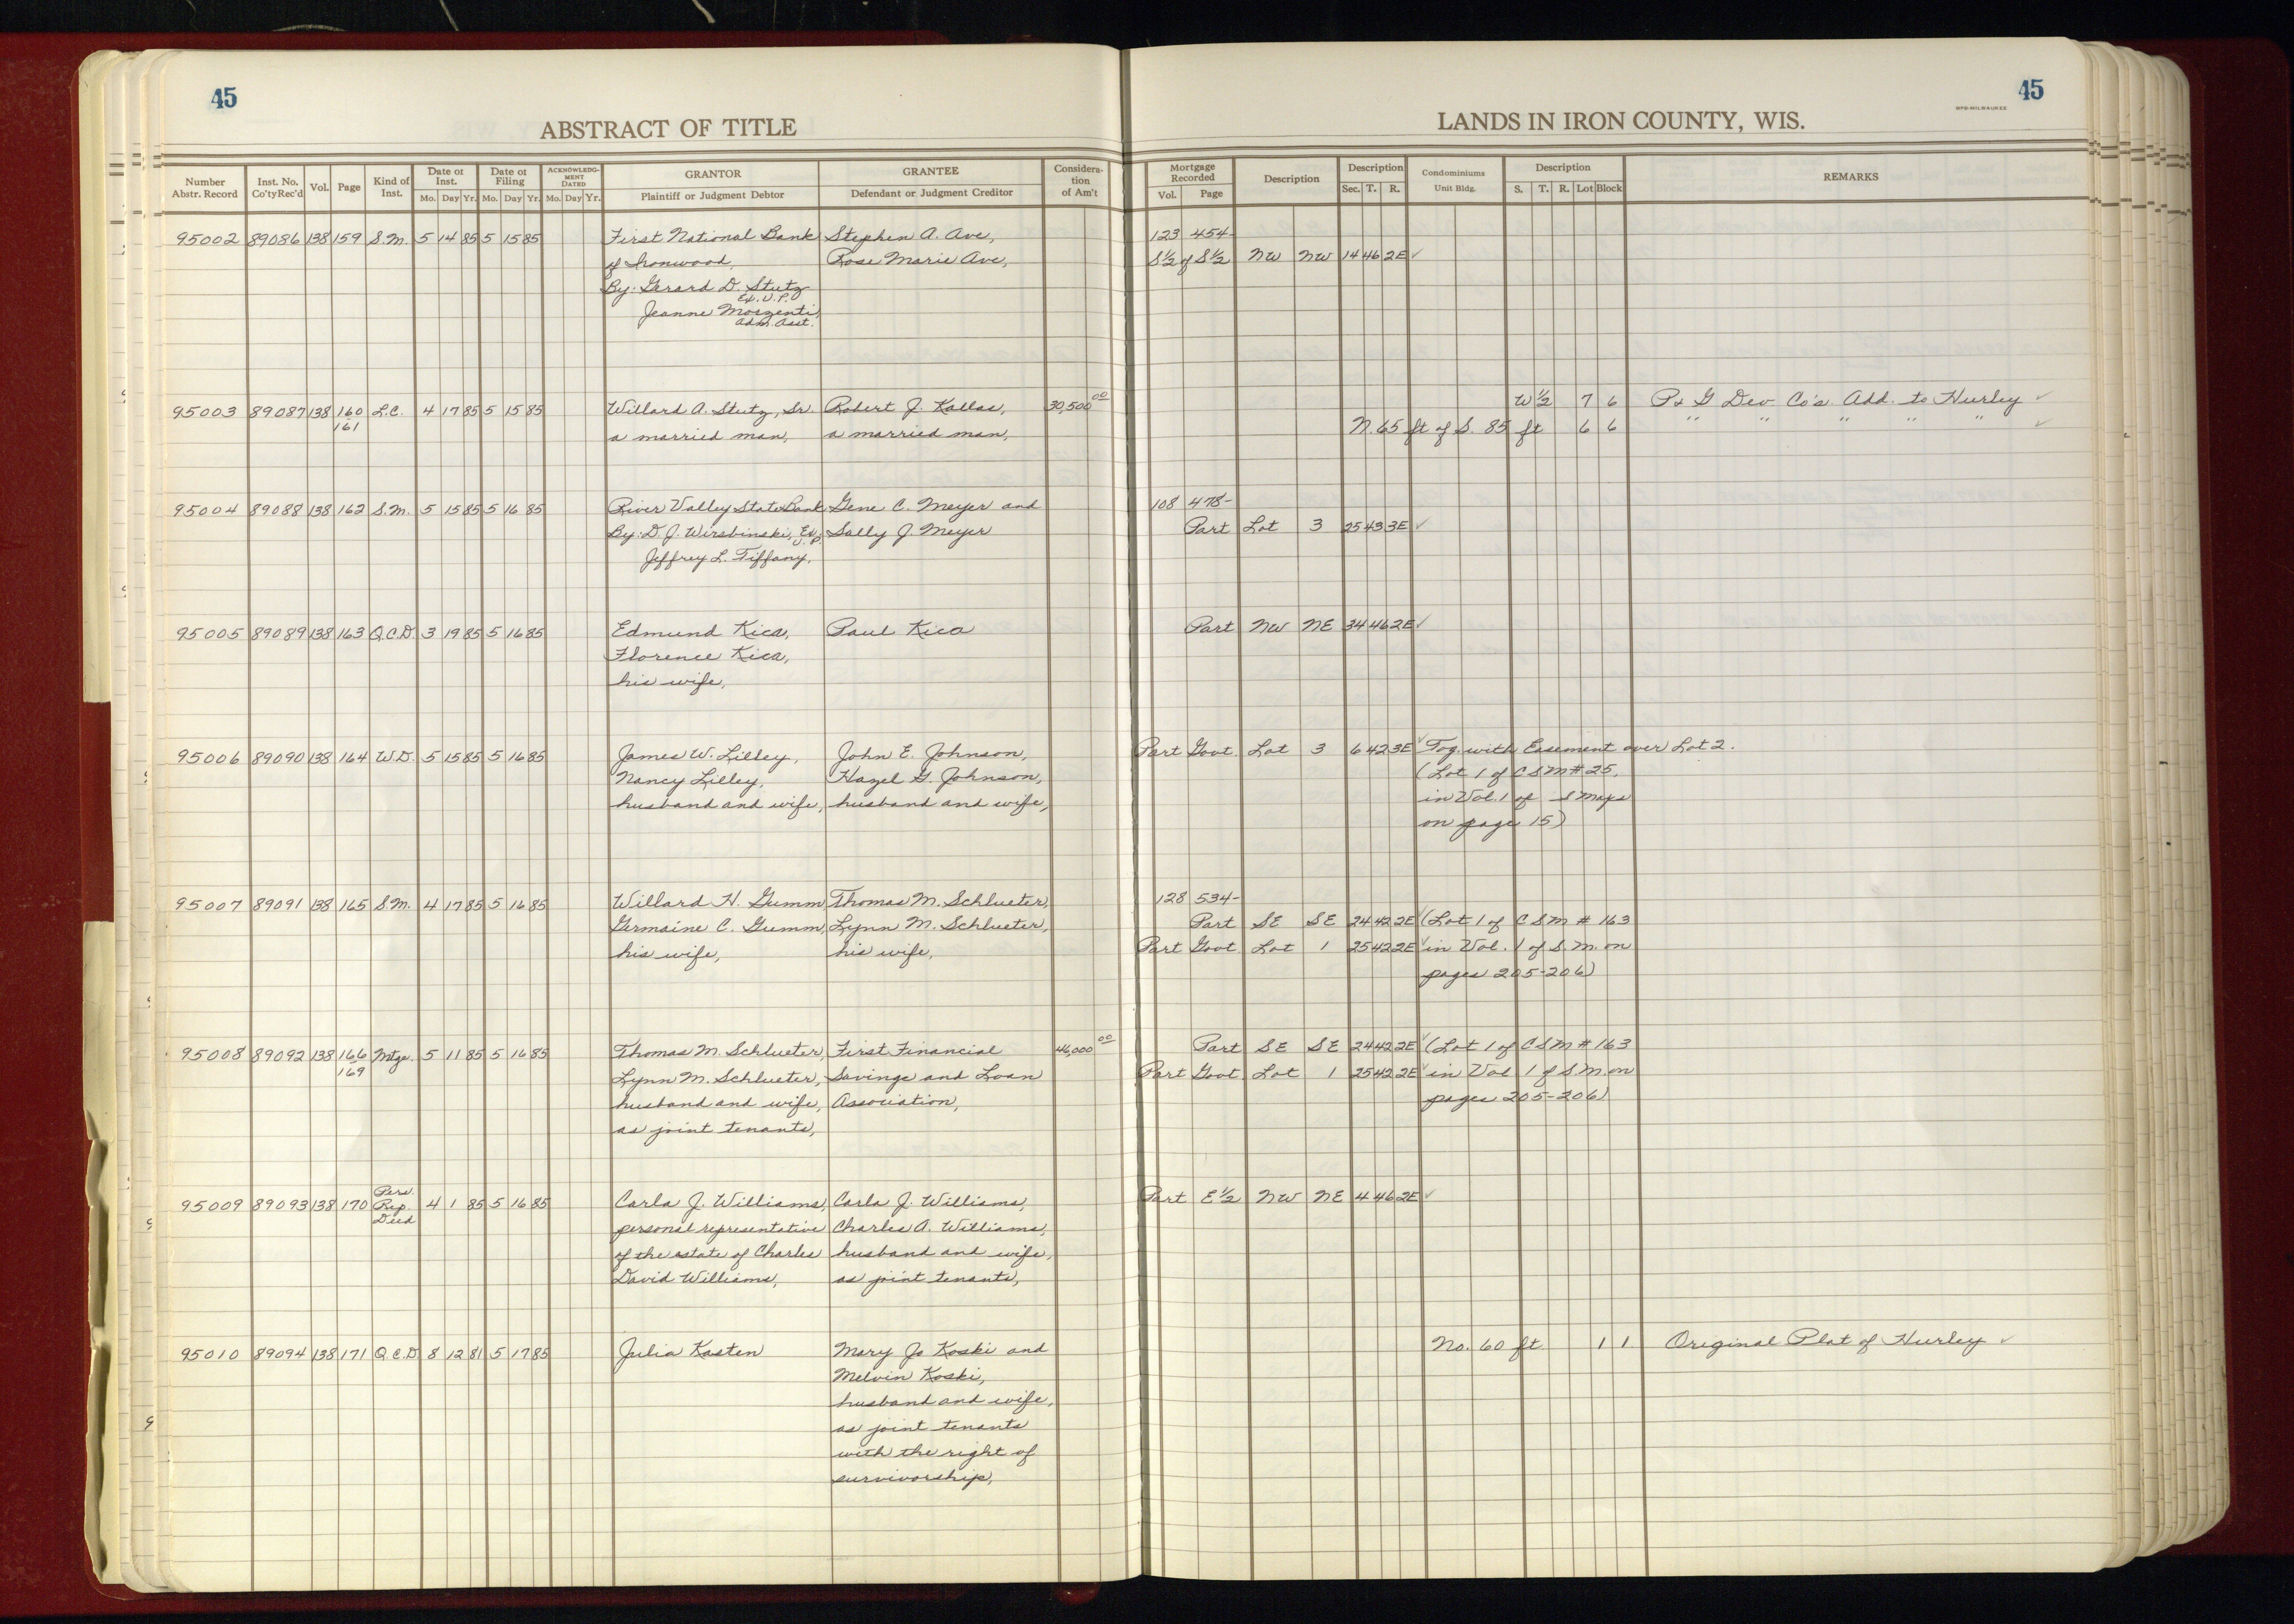 45
ABSTRACT OF TITLE
Number Abstr. Record | Inst. No. Co'ty Rec'd | Vol. | Page | Kind of Inst. | Date of Inst. Mo. Day Yr. | Date of Filing Mo. Day Yr. | ACKNOWLEDGMENT DATED Mo. Day Yr. | GRANTOR Plaintiff or Judgment Debtor | GRANTEE Defendant or Judgment Creditor | Consideration of Am't
95002 89086 138 159 S.M. 5 14 85 5 15 85 First National Bank Stephen A. Ave,
of Ironwood, Rose Marie Ave,
By: Gerard D. Stutz
Ex. V.P.
Jeanne Morzenti,
Adm. Asst.
95003 89087 138 160 L.C. 4 17 85 5 15 85 Willard A. Stutz, Sr. Robert J. Kallas, 30,500 00
161 a married man, a married man,
95004 89088 138 162 S.M. 5 15 85 5 16 85 River Valley State Bank Gene C. Meyer and
By: D. J. Wirsbinski, Ex. V.P. Sally J. Meyer
Jeffrey L. Tiffany,
95005 89089 138 163 Q.C.D. 3 19 85 5 16 85 Edmund Kica, Paul Kica
Florence Kica,
his wife,
95006 89090 138 164 W.D. 5 15 85 5 16 85 James W. Lilley, John E. Johnson,
Nancy Lilley, Hazel G. Johnson,
husband and wife, husband and wife,
95007 89091 138 165 S.M. 4 17 85 5 16 85 Willard H. Gumm, Thomas M. Schlueter,
Germaine C. Gumm, Lynn M. Schlueter,
his wife, his wife,
95008 89092 138 166 Mtge. 5 11 85 5 16 85 Thomas M. Schlueter, First Financial 46,000 00
169 Lynn M. Schlueter, Savings and Loan
husband and wife, Association,
as joint tenants,
95009 89093 138 170 Pers. Rep. Deed 4 1 85 5 16 85 Carla J. Williams, Carla J. Williams,
personal representative Charles A. Williams,
of the estate of Charles husband and wife,
David Williams, as joint tenants,
95010 89094 138 171 Q.C.D 8 12 81 5 17 85 Julia Kasten Mary Jo Koski and
Melvin Koski,
husband and wife,
as joint tenants
with the right of
survivorship,
45
WPB-MILWAUKEE
LANDS IN IRON COUNTY, WIS.
Mortgage Recorded Vol. Page | Description | Description Sec. T. R. | Condominiums Unit Bldg. | Description S. T. R. Lot Block | REMARKS
123 454
S½ of S½ NW NW 14 46 2E ✓
W ½ 7 6 P & G Dev Co's. Add. to Hurley ✓
N. 65 ft of S. 85 ft 6 6 " " " " " ✓
108 478-
Part Lot 3 25 43 3E ✓
Part NW NE 34 46 2E ✓
Part Govt. Lot 3 6 42 3E ✓ Tog. with Easement over Lot 2.
(Lot 1 of CSM # 25,
in Vol. 1 of S Maps
on page 15)
128 534-
Part SE SE 24 42 2E ✓ (Lot 1 of CSM # 163
Part Govt Lot 1 25 42 2E ✓ in Vol. 1 of S.M. on
pages 205-206)
Part SE SE 24 42 2E ✓ (Lot 1 of CSM # 163
Part Govt Lot 1 25 42 2E ✓ in Vol 1 of S.M on
pages 205-206)
Part E½ NW NE 4 46 2E ✓
No. 60 ft 1 1 Original Plat of Hurley ✓